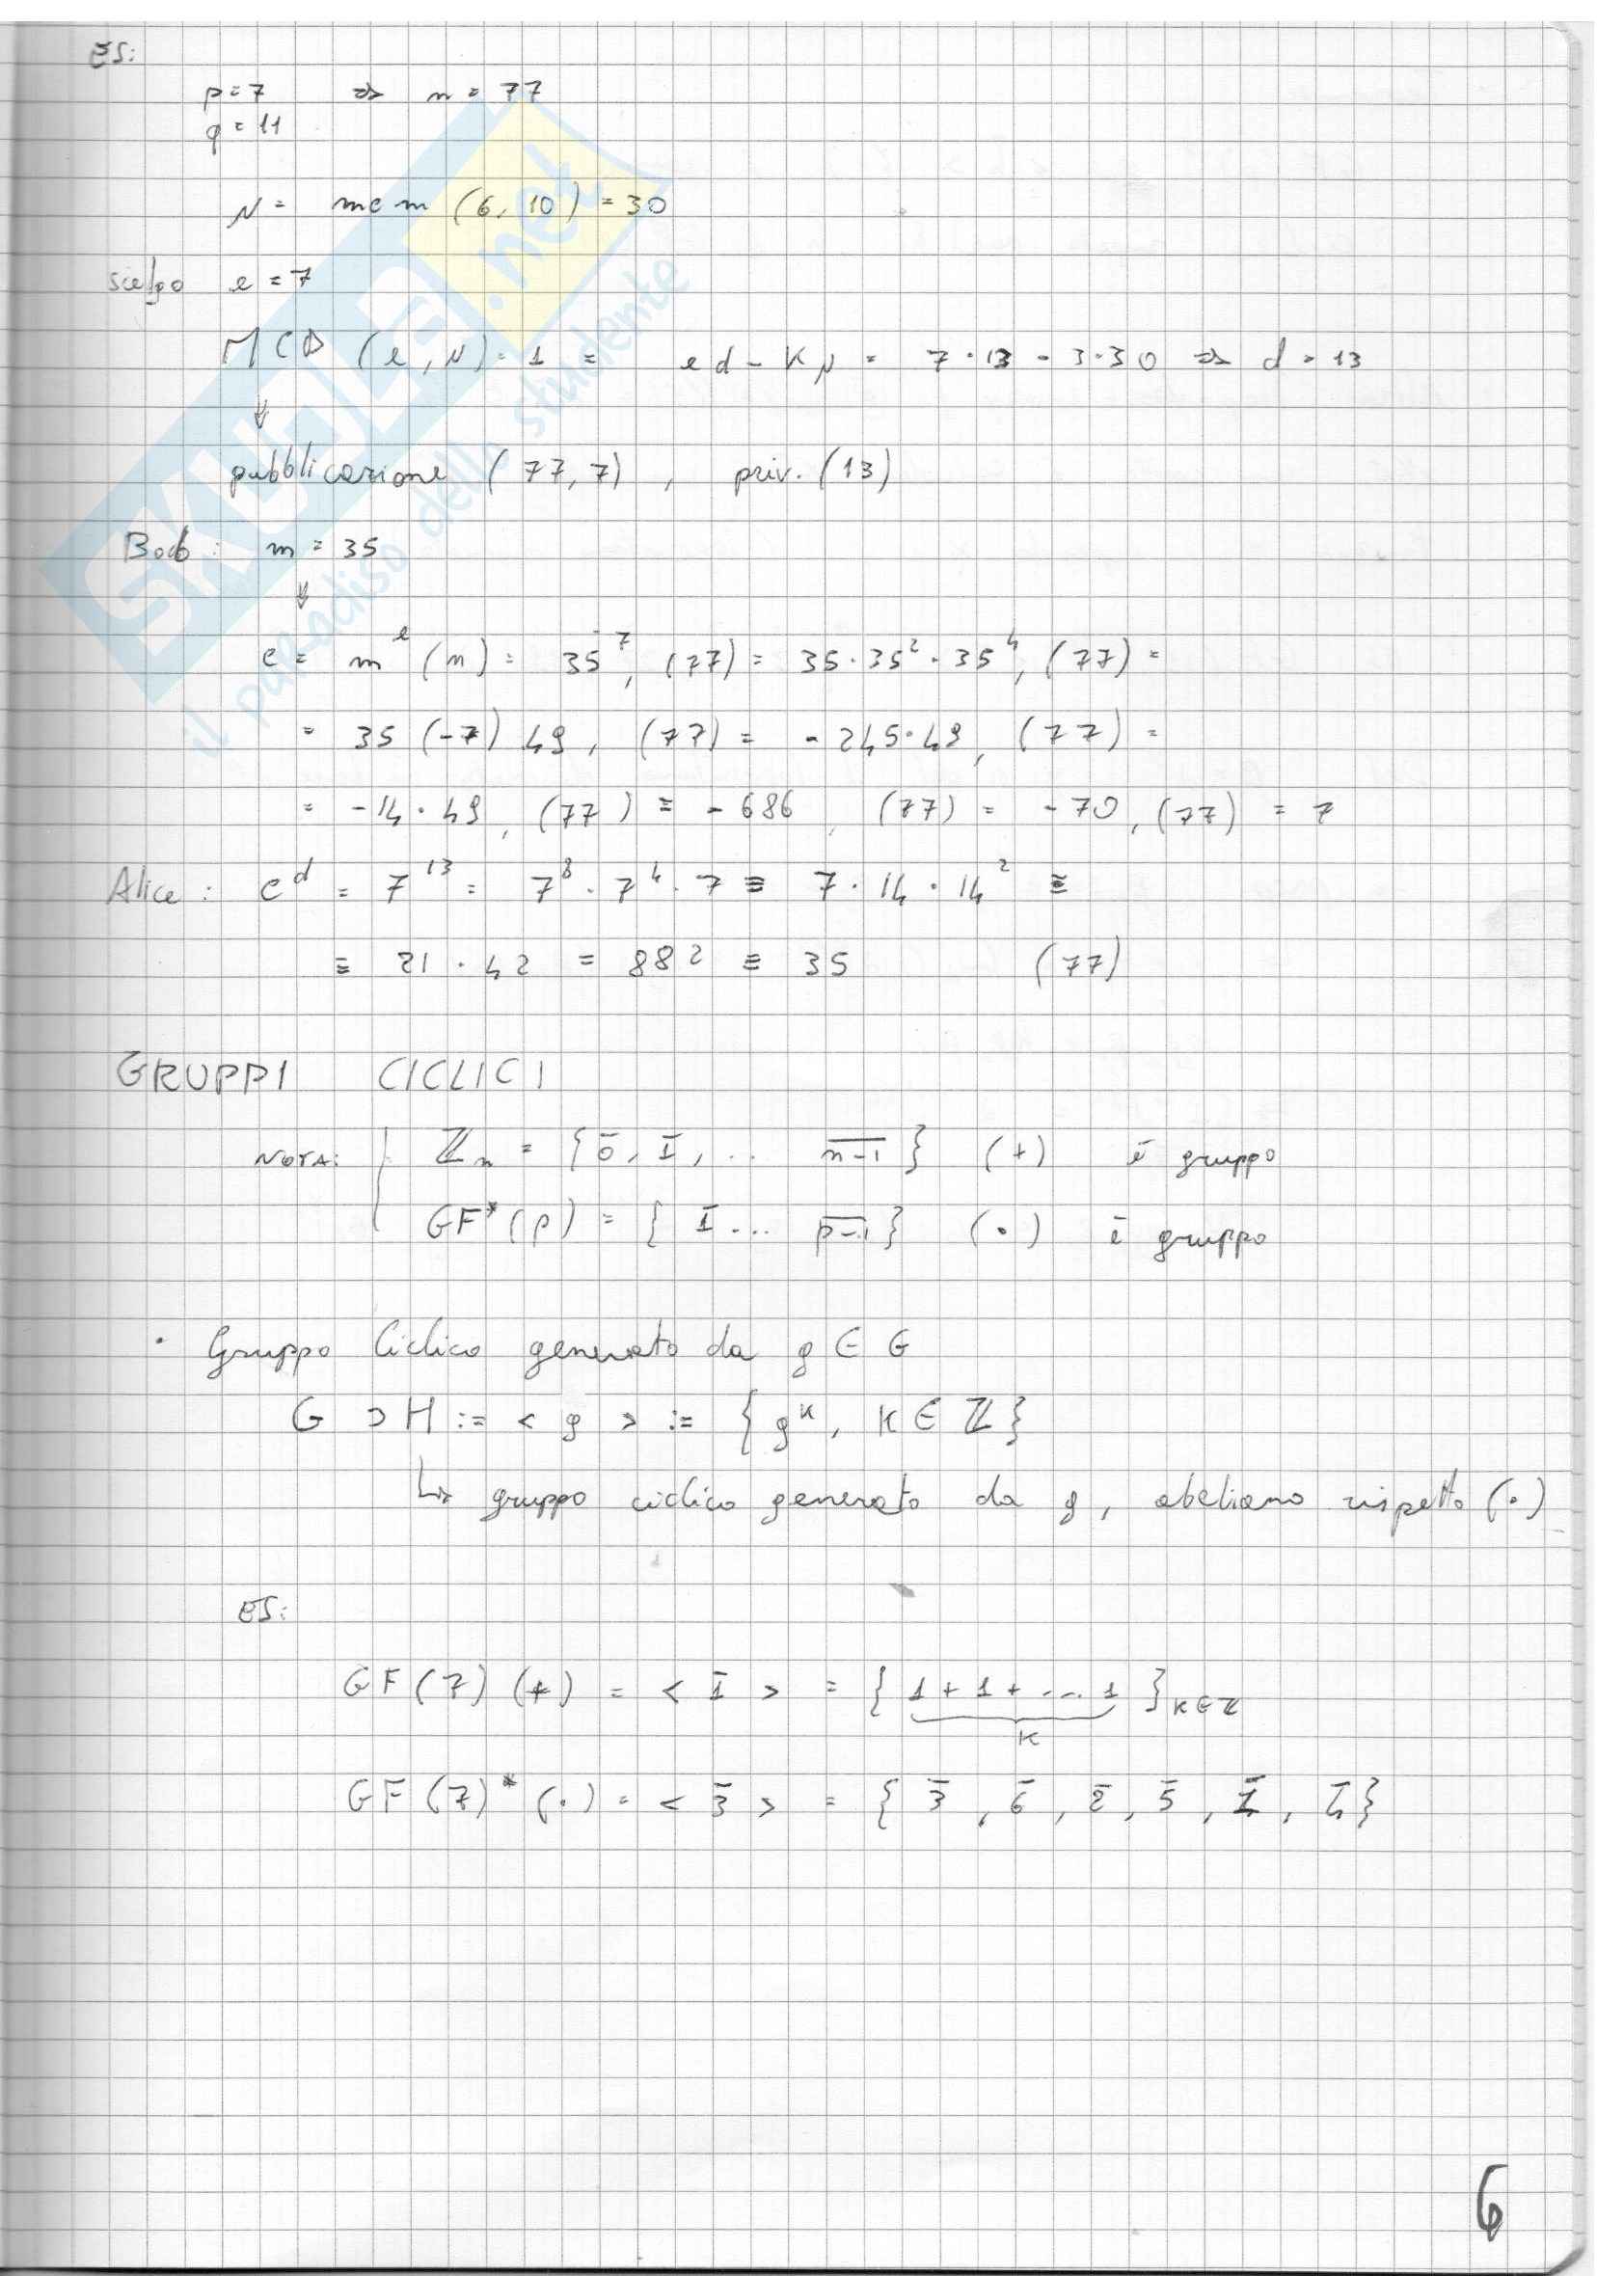 ES:
p = 7 ⇒ n = 77
q = 11
N = mcm (6, 10) = 30
scelgo e = 7
MCD (e, N) = 1 = ed - KN = 7·13 - 3·30 ⇒ d = 13
⇓
pubblicazione (77, 7) , priv. (13)
Bob : m = 35
⇓
c = m^e (n) = 35^7, (77) = 35·35^2·35^4, (77) =
= 35 (-7) 49, (77) = -245·49, (77) =
= -14·49, (77) ≡ -686, (77) = -70, (77) = 7
Alice : c^d = 7^13 = 7^8 · 7^4 · 7 ≡ 7 · 14 · 14^2 ≡
≡ 21 · 42 = 882 ≡ 35 (77)
GRUPPI CICLICI
NOTA: ℤn = { 0̅, 1̅, ... n-1̅ } (+) è gruppo
GF*(p) = { 1̅ ... p-1̅ } (·) è gruppo
· Gruppo Ciclico generato da g ∈ G
G ⊃ H := < g > := { g^K, K ∈ ℤ }
↳ gruppo ciclico generato da g, abeliano rispetto (·)
ES:
GF(7) (+) = < 1̅ > = { 1 + 1 + ... 1 } K∈ℤ
K
GF(7)* (·) = < 3̅ > = { 3̅, 6̅, 2̅, 5̅, 1̅, 4̅ }
6
SKUOLA.net
il paradiso dello studente